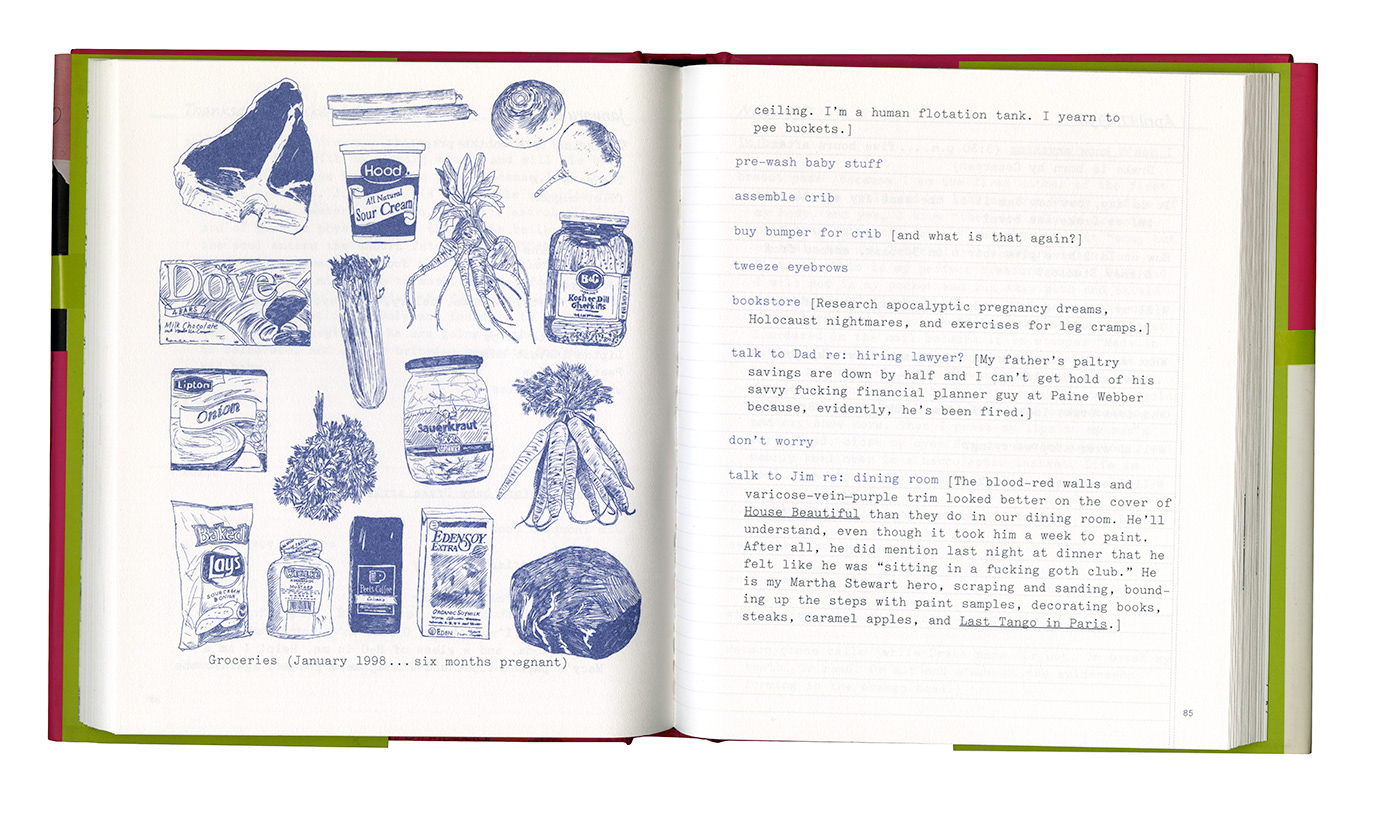 Hood
All Natural
Sour Cream
B&G
Kosher Dill
Gherkins
Dove
Milk Chocolate
Lipton
Onion
Sauerkraut
Baked!
Lays
SOUR CREAM
& ONION
MUSTARD
Peets Coffee
EDENSOY
EXTRA
ORGANIC SOYMILK
EDEN
Groceries (January 1998...six months pregnant)
ceiling. I'm a human flotation tank. I yearn to
pee buckets.]
pre-wash baby stuff
assemble crib
buy bumper for crib [and what is that again?]
tweeze eyebrows
bookstore [Research apocalyptic pregnancy dreams,
Holocaust nightmares, and exercises for leg cramps.]
talk to Dad re: hiring lawyer? [My father's paltry
savings are down by half and I can't get hold of his
savvy fucking financial planner guy at Paine Webber
because, evidently, he's been fired.]
don't worry
talk to Jim re: dining room [The blood-red walls and
varicose-vein-purple trim looked better on the cover of
House Beautiful than they do in our dining room. He'll
understand, even though it took him a week to paint.
After all, he did mention last night at dinner that he
felt like he was "sitting in a fucking goth club." He
is my Martha Stewart hero, scraping and sanding, bound-
ing up the steps with paint samples, decorating books,
steaks, caramel apples, and Last Tango in Paris.]
85